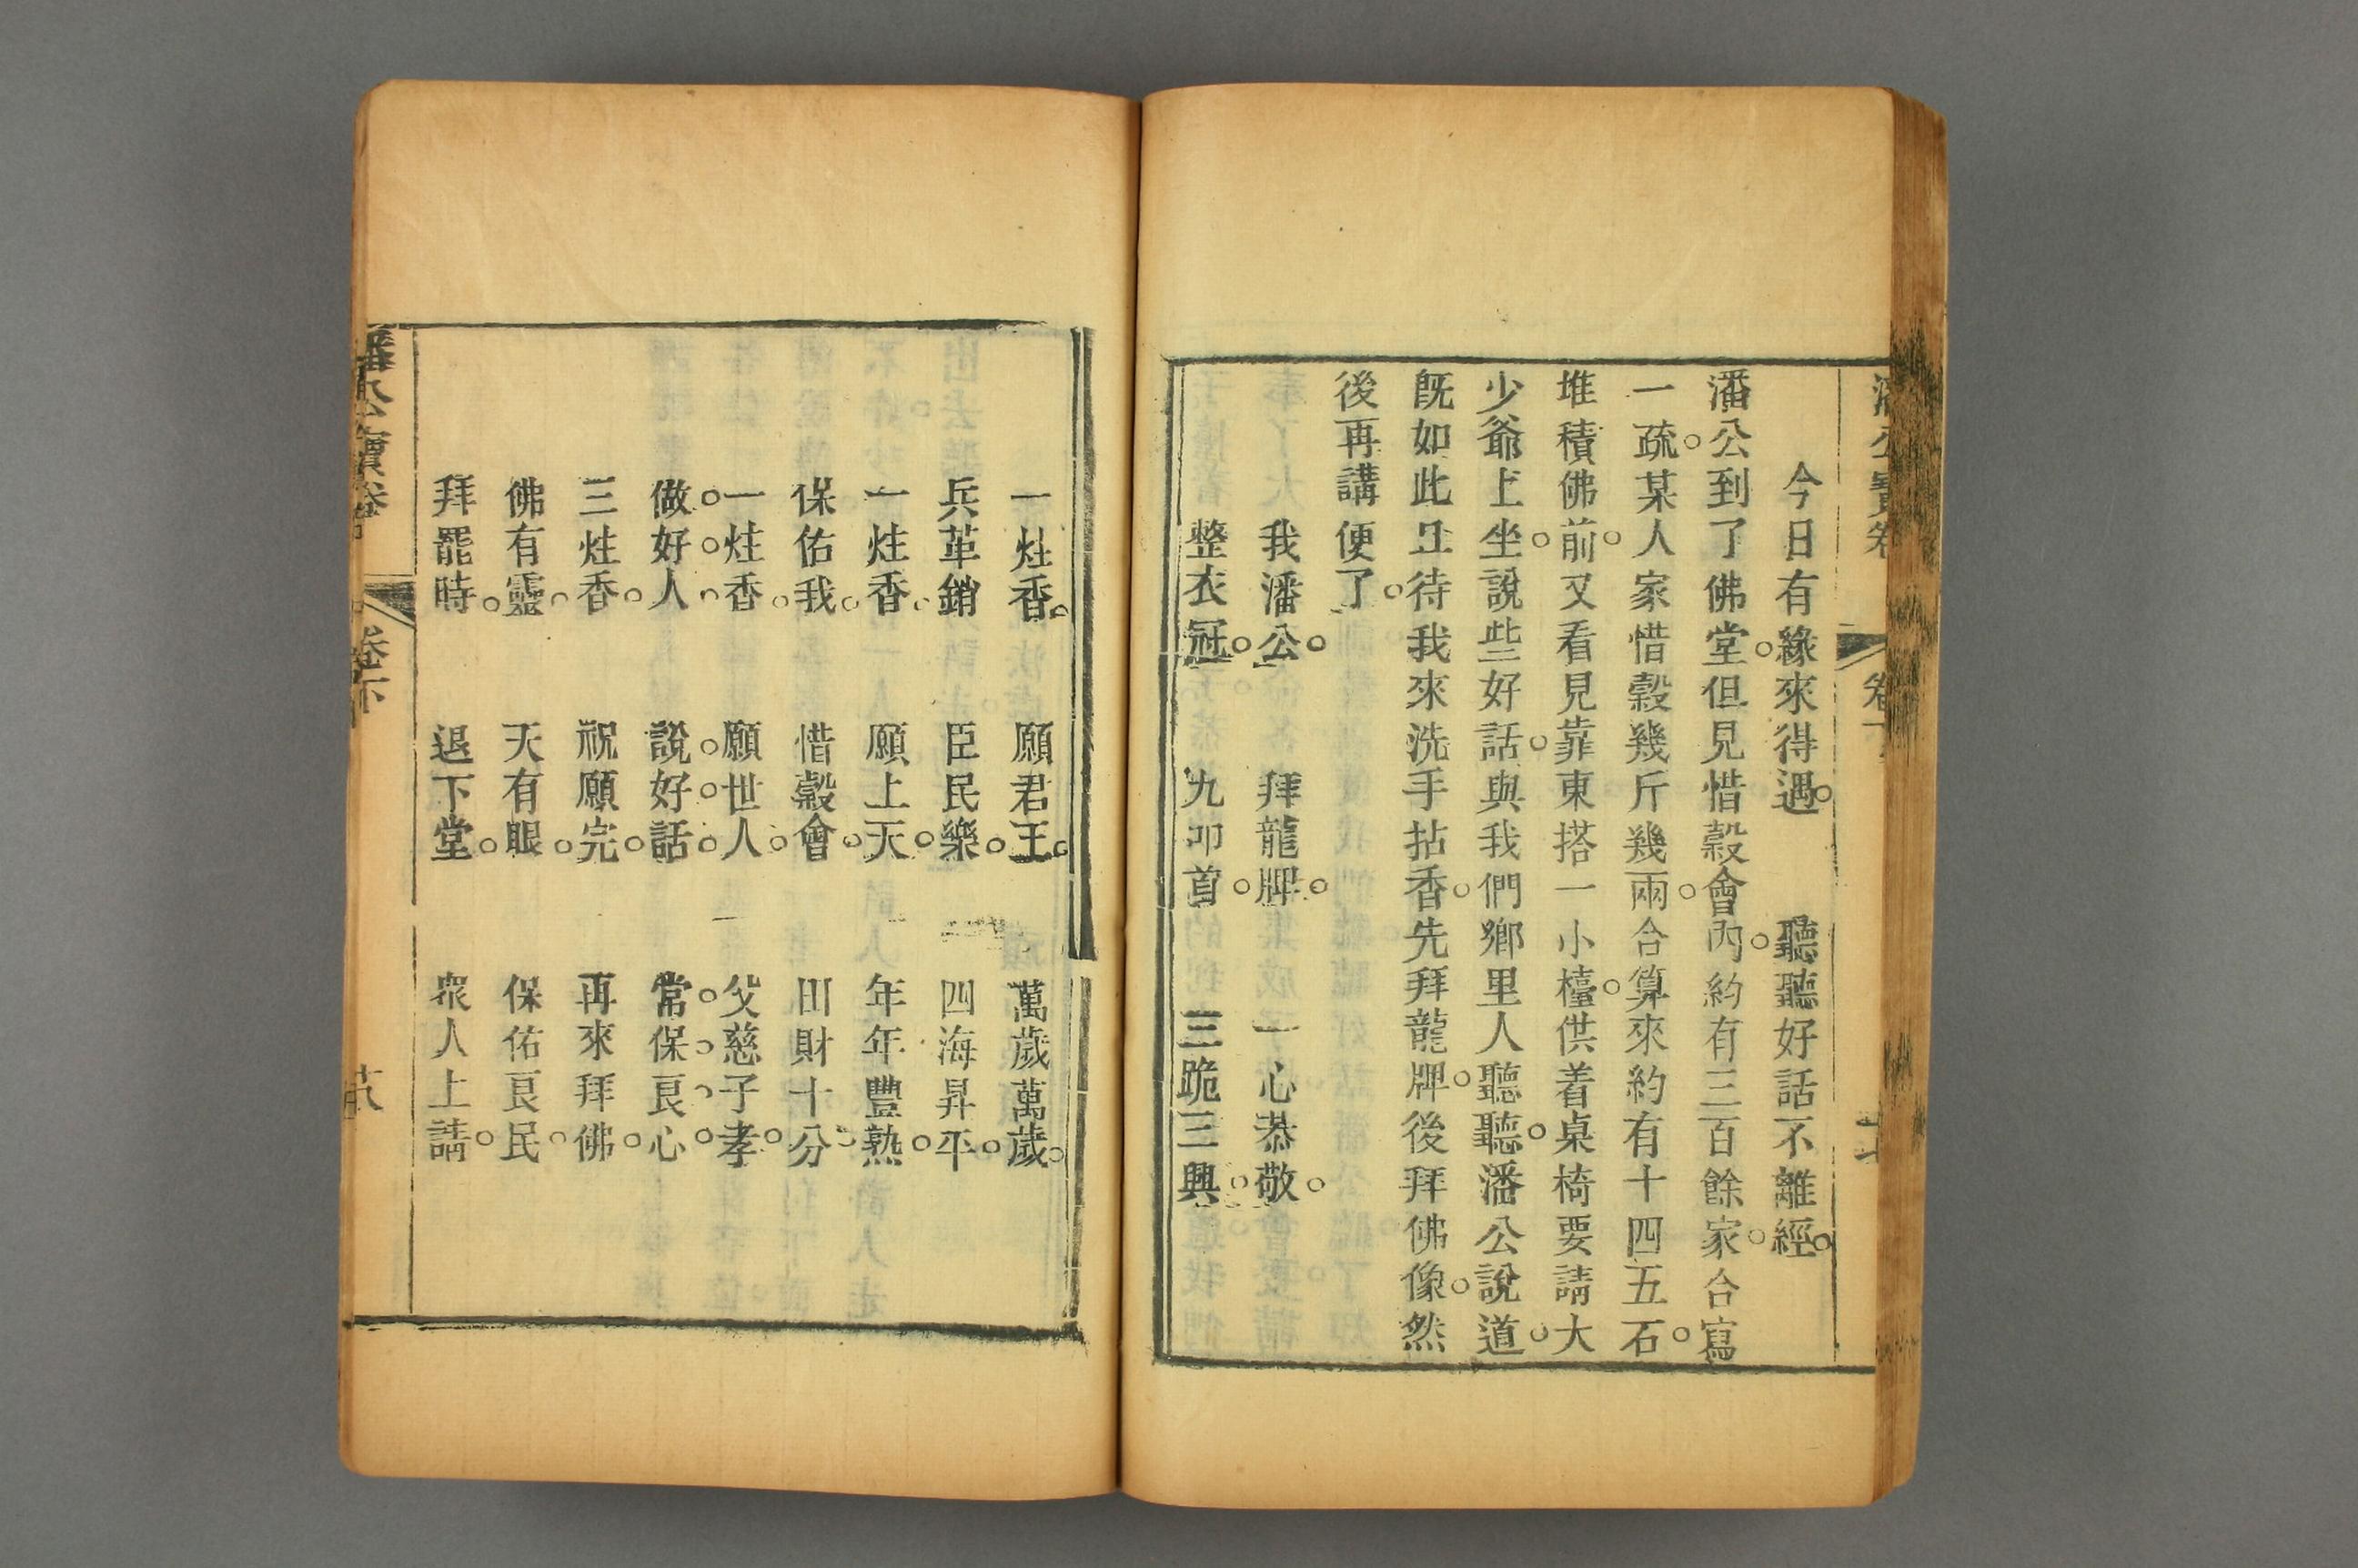 今日有緣來得遇。聽聽好話不離經。
潘公到了佛堂。但見惜穀會內。約有三百餘家。合寫
一疏。某人家惜穀幾斤幾兩。合算來約有十四五石。
堆積佛前。又看見靠東搭一小檯。供着桌椅要請大
少爺上坐。說些好話。與我們鄉里人聽聽。潘公說道。
既如此且待我來洗手拈香。先拜龍牌。後拜佛像。然
後再講便了。
我潘公。拜龍牌。一心恭敬。
整衣冠。九叩首。三跪三興。
一炷香。願君王。萬歲萬歲。
兵革銷。臣民樂。四海昇平。
一炷香。願上天。年年豐熟。
保佑我。惜穀會。田財十分。
一炷香。願世人。父慈子孝。
做好人。說好話。常保良心。
三炷香。祝願完。再來拜佛。
佛有靈。天有眼。保佑良民。
拜罷時。退下堂。衆人上請。
潘公寶卷 卷下